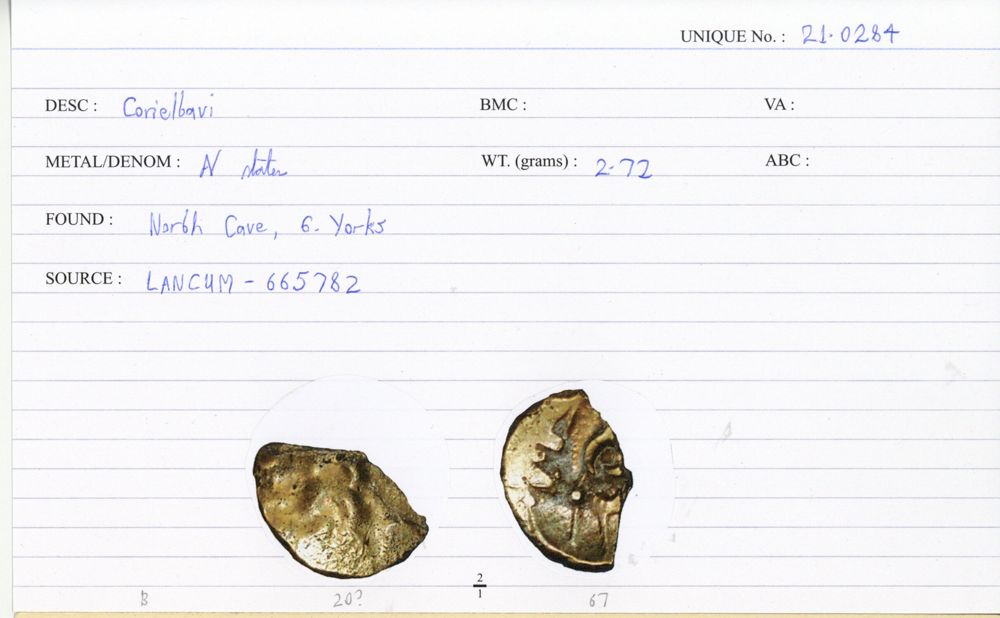 UNIQUE No. : 21.0284
DESC : Corielbavi BMC : VA :
METAL/DENOM : N stater WT. (grams) : 2.72 ABC :
FOUND : North Cave, E. Yorks
SOURCE : LANCUM - 665782
2
1
B 20? 67